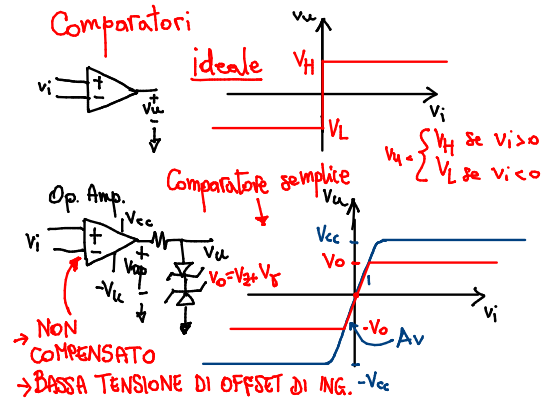 Comparatori
ideale
vi
+
−
+
vu
−
vu
VH
VL
vi
vu = { VH se vi>0
VL se vi<0
Op. Amp.
Comparatore semplice
vi
+
−
Vcc
-Vu
+
Vop
−
vu
Vo=Vz+Vγ
vu
Vcc
Vo
1
vi
-Vo
Av
-Vcc
→ NON
COMPENSATO
→ BASSA TENSIONE DI OFFSET DI ING.